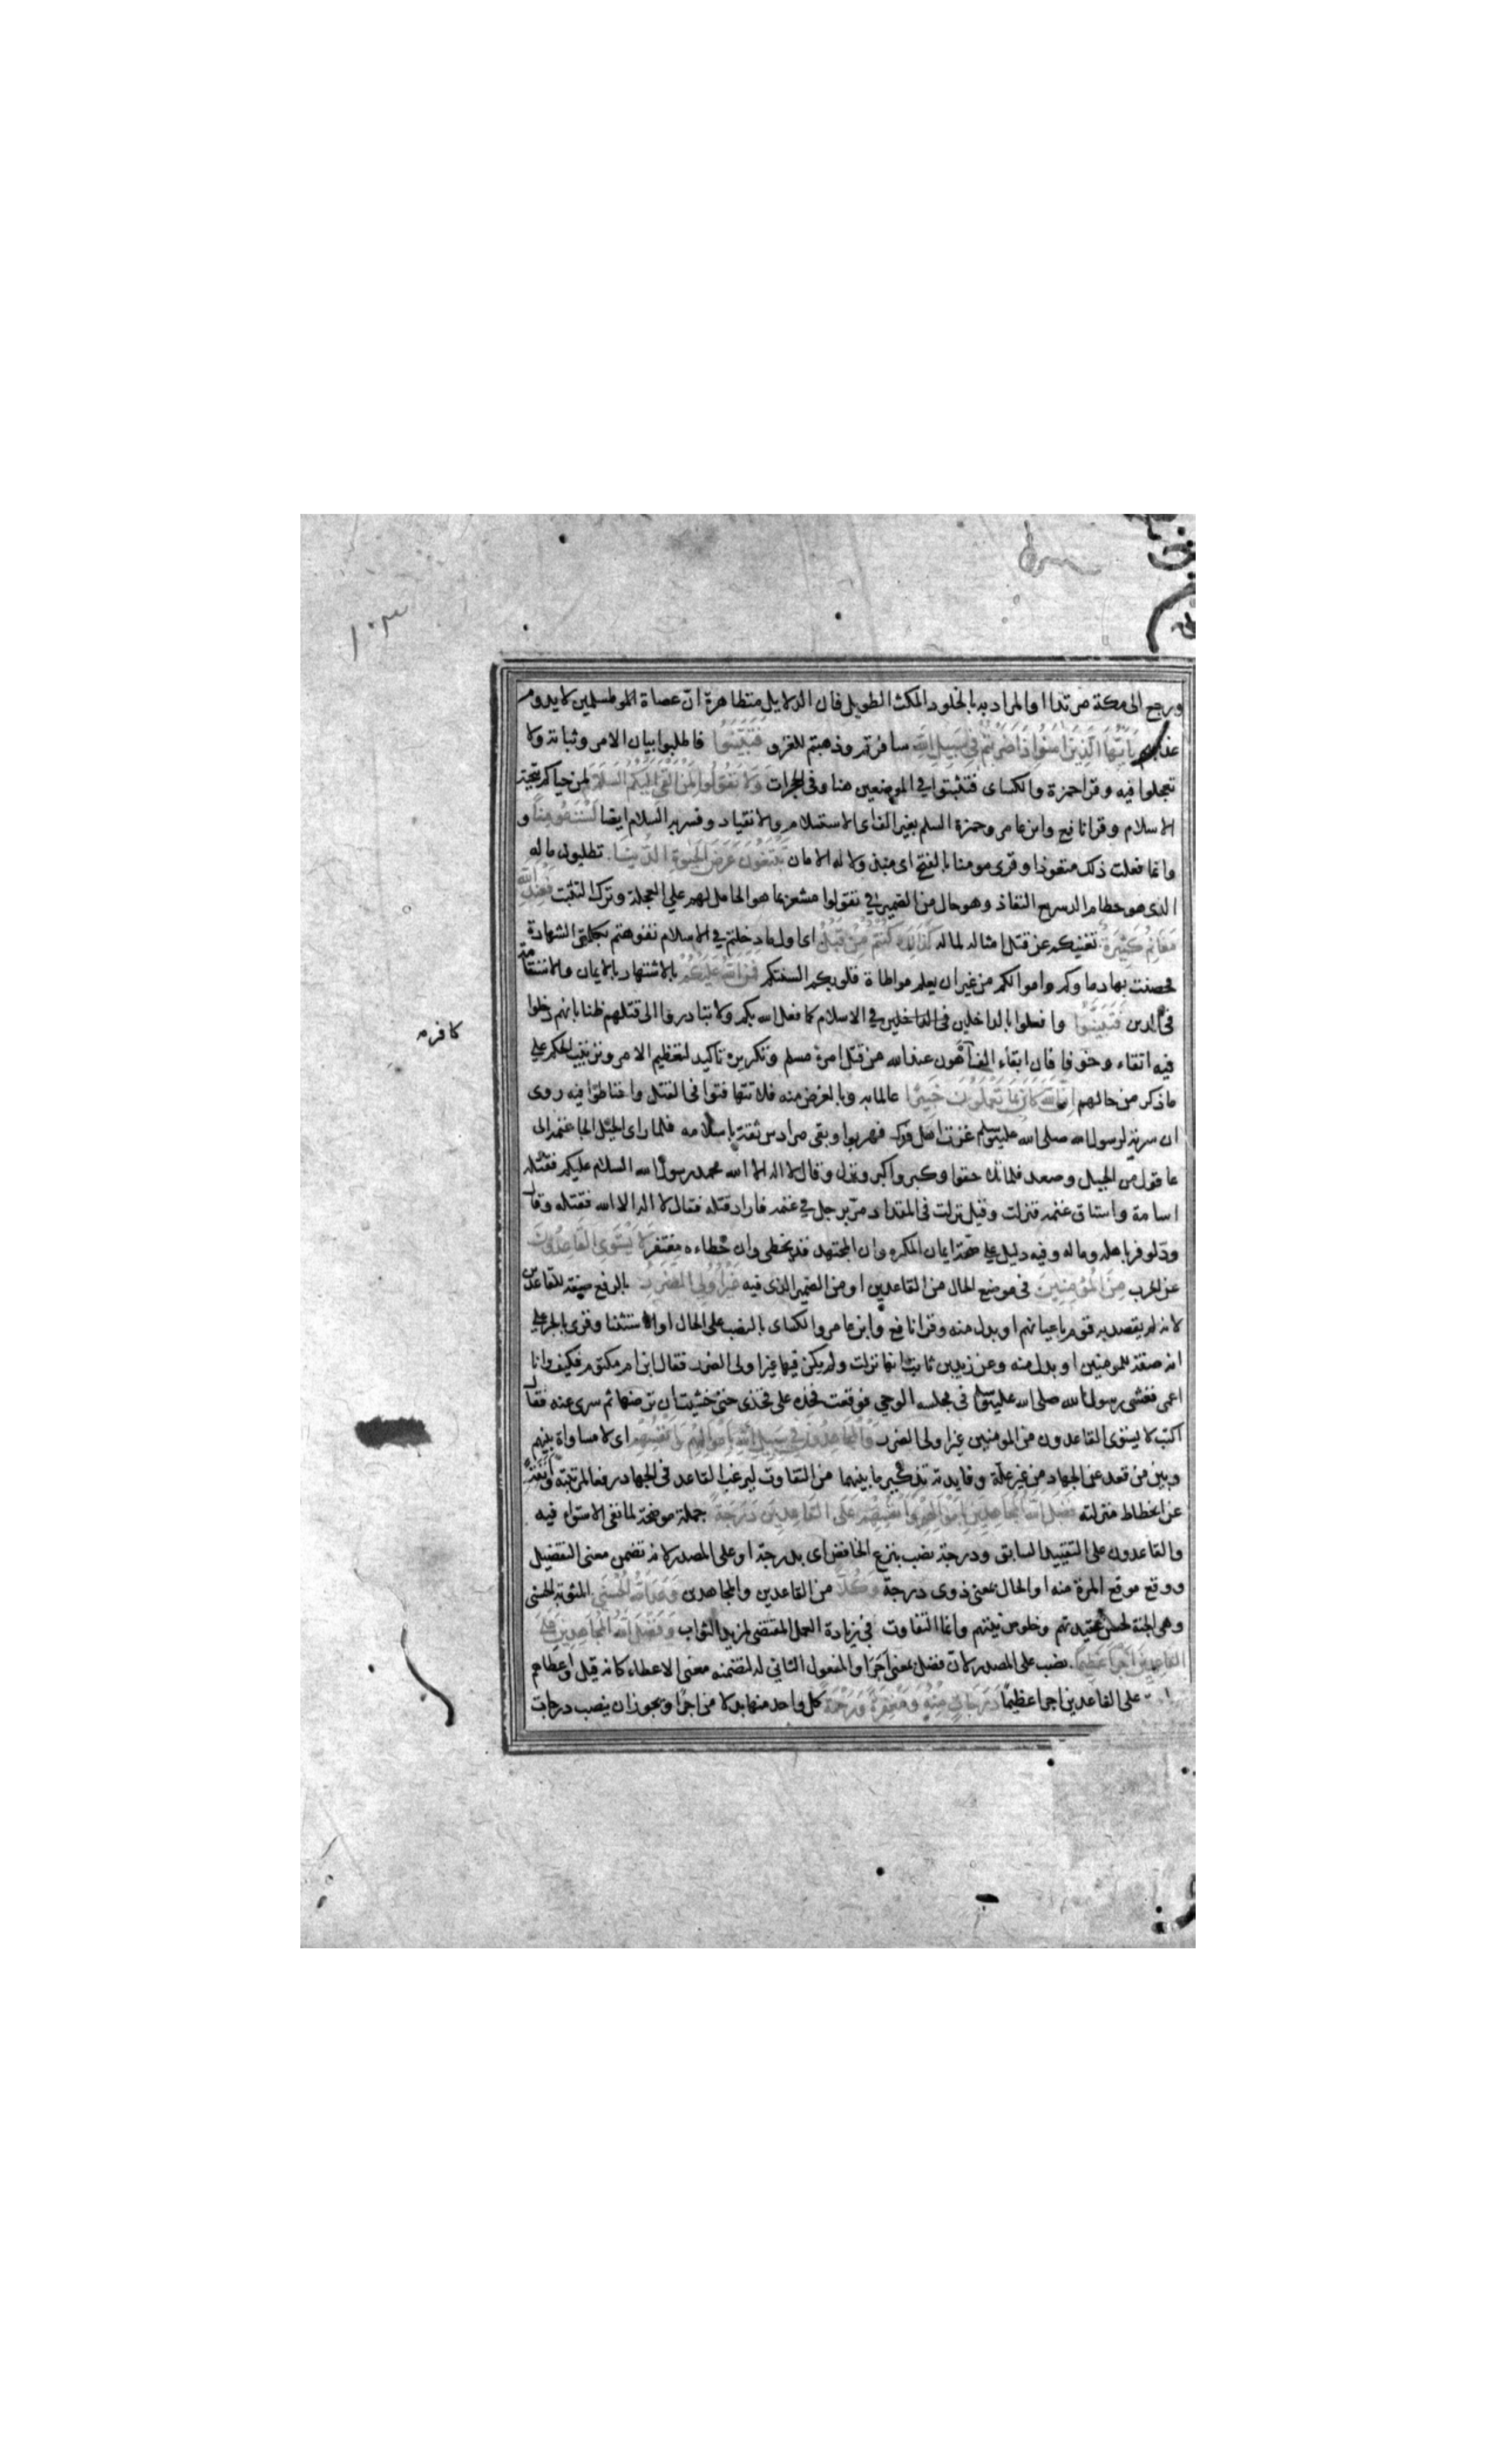 ١٠٣
ورجع الى مكة مرتدا او المراد به بالخلود المكث الطويل فان الدلايل متظاهرة ان عصاة المسلمين لا يدوم
عذابهم يايها الذين امنوا اذا ضربتم في سبيل الله سافرتم وذهبتم للغزو فتبينوا فاطلبوا بيان الامر وثباته ولا
تعجلوا فيه وقرا حمزة والكساى فتثبتوا في الموضعين هنا وفي الحجرات ولا تقولوا لمن القى اليكم السلام لمن حياكم بتحية
الاسلام وقرا نافع وابن عامر وحمزة السلم بغير الف اى الاستسلام والانقياد وفسر به السلام ايضا لست مومنا و
وانما فعلت ذلك متعوذا وقرى مومنا بالفتح اى مبذولا له الامان تبتغون عرض الحيوة الدنيا تطلبون ماله
الذى هو حطام السريع النفاذ وهو حال من الضمير في تقولوا مشعر بما هو الحامل لهم على العجلة وترك التثبت فعند الله
مغانم كثيرة تغنيكم عن قتل امثاله لماله كذلك كنتم من قبل اى اول ما دخلتم في الاسلام تفوهتم بكلمتى الشهادة
فحصنت بها دماوكم واموالكم من غير ان يعلم مواطاة قلوبكم السنتكم فمن الله عليكم بالاشتهار بالايمان والاستقامة
في الدين فتبينوا وافعلوا بالداخلين في الاسلام كما فعل الله بكم ولا تبادروا الى قتلهم ظنا بانهم دخلوا
فيه اتقاء وخوفا فان ابقاء الف اهون عند الله من قتل امرء مسلم وتكريره تاكيد لتعظيم الامر وترتيب الحكم على
كافر مه
ما ذكر من حالهم ان الله كان بما تعملون خبيرا عالما به وبالغرض منه فلا تتهافتوا في القتل واحتاطوا فيه روى
ان سرية لرسول الله صلى الله عليه وسلم غزت اهل فدك فهربوا وبقى مرداس ثقة باسلامه فلما راى الخيل الجا غنمه الى
عاقول من الجبل وصعد فلما تلاحقوا وكبروا كبر ونزل وقال لا اله الا الله محمد رسول الله السلام عليكم فقتله
اسامة واستاق غنمه فنزلت وقيل نزلت في المقداد مر برجل في غنمه فاراد قتله فقال لا اله الا الله فقتله وقال
ود لو فر باهله وماله وفيه دليل على صحة ايمان المكره وان المجتهد قد يخطى وان خطاءه مغتفر لا يستوى القاعدون
عن الحرب من المؤمنين في موضع الحال من القاعدين او من الضمير الذى فيه غير اولي الضرر بالرفع صفة للقاعدين
لانه لم يقصد به قوم باعيانهم او بدل منه وقرا نافع وابن عامر والكساى بالنصب على الحال او الاستثنا وقرى بالجر على
انه صفة للمومنين او بدل منه وعن زيد بن ثابت انها نزلت ولم يكن فيها غير اولى الضرر فقال ابن ام مكتوم فكيف وانا
اعمى فغشى رسول الله صلى الله عليه وسلم في مجلسه الوحي فوقعت فخذه على فخذى حتى خشيت ان ترضها ثم سرى عنه فقال
اكتب لا يستوى القاعدون من المومنين غير اولى الضرر والمجاهدون في سبيل الله باموالهم وانفسهم اى لا مساواة بينهم
وبين من قعد عن الجهاد من غير علة وفايدته تذكير ما بينهما من التفاوت ليرغب القاعد في الجهاد رفعا لمرتبته وانفة
عن انحطاط منزلته فضل الله المجاهدين باموالهم وانفسهم على القاعدين درجة جملة موضحة لما نفى الاستواء فيه
والقاعدون على التقييد السابق ودرجة نصب بنزع الخافض اى بدرجة او على المصدر لانه تضمن معنى التفضيل
ووقع موقع المرة منه او الحال بمعنى ذوى درجة وكلا من القاعدين والمجاهدين وعد الله الحسنى المثوبة الحسنى
وهى الجنة لحسن عقيدتهم وخلوص نيتهم وانما التفاوت في زيادة العمل المقتضى لمزيد الثواب وفضل الله المجاهدين على
القاعدين اجرا عظيما نصب على المصدر لان فضل بمعنى اجر او المفعول الثاني له لتضمنه معنى الاعطاء كانه قيل واعطاهم
على القاعدين اجرا عظيما درجات منه ومغفرة ورحمة كل واحد منها بدلا من اجرا ويجوز ان ينصب درجات